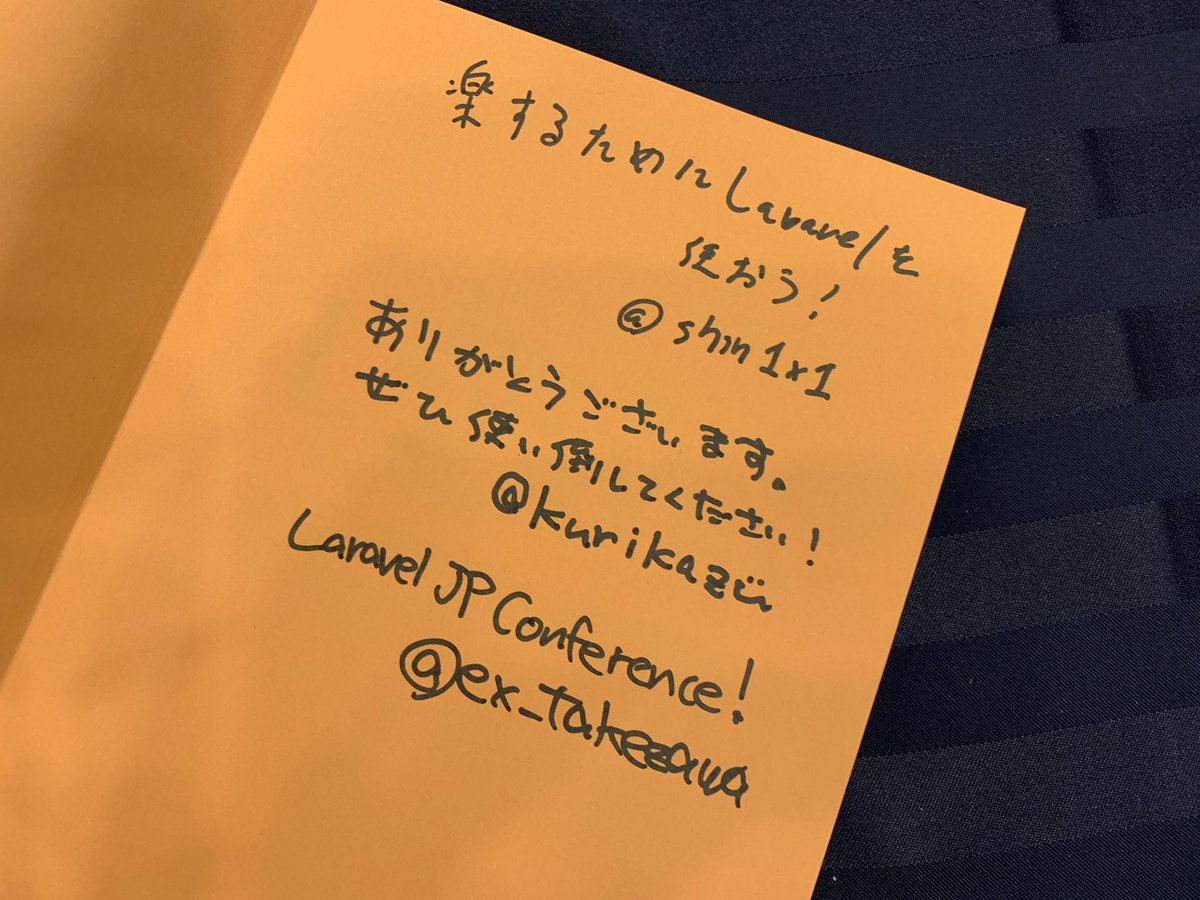 楽するためにLaravelを
使おう!
@shin1x1
ありがとうございます。
ぜひ使い倒してください!
@kurikazu
Laravel JP Conference!
@ex_takezawa